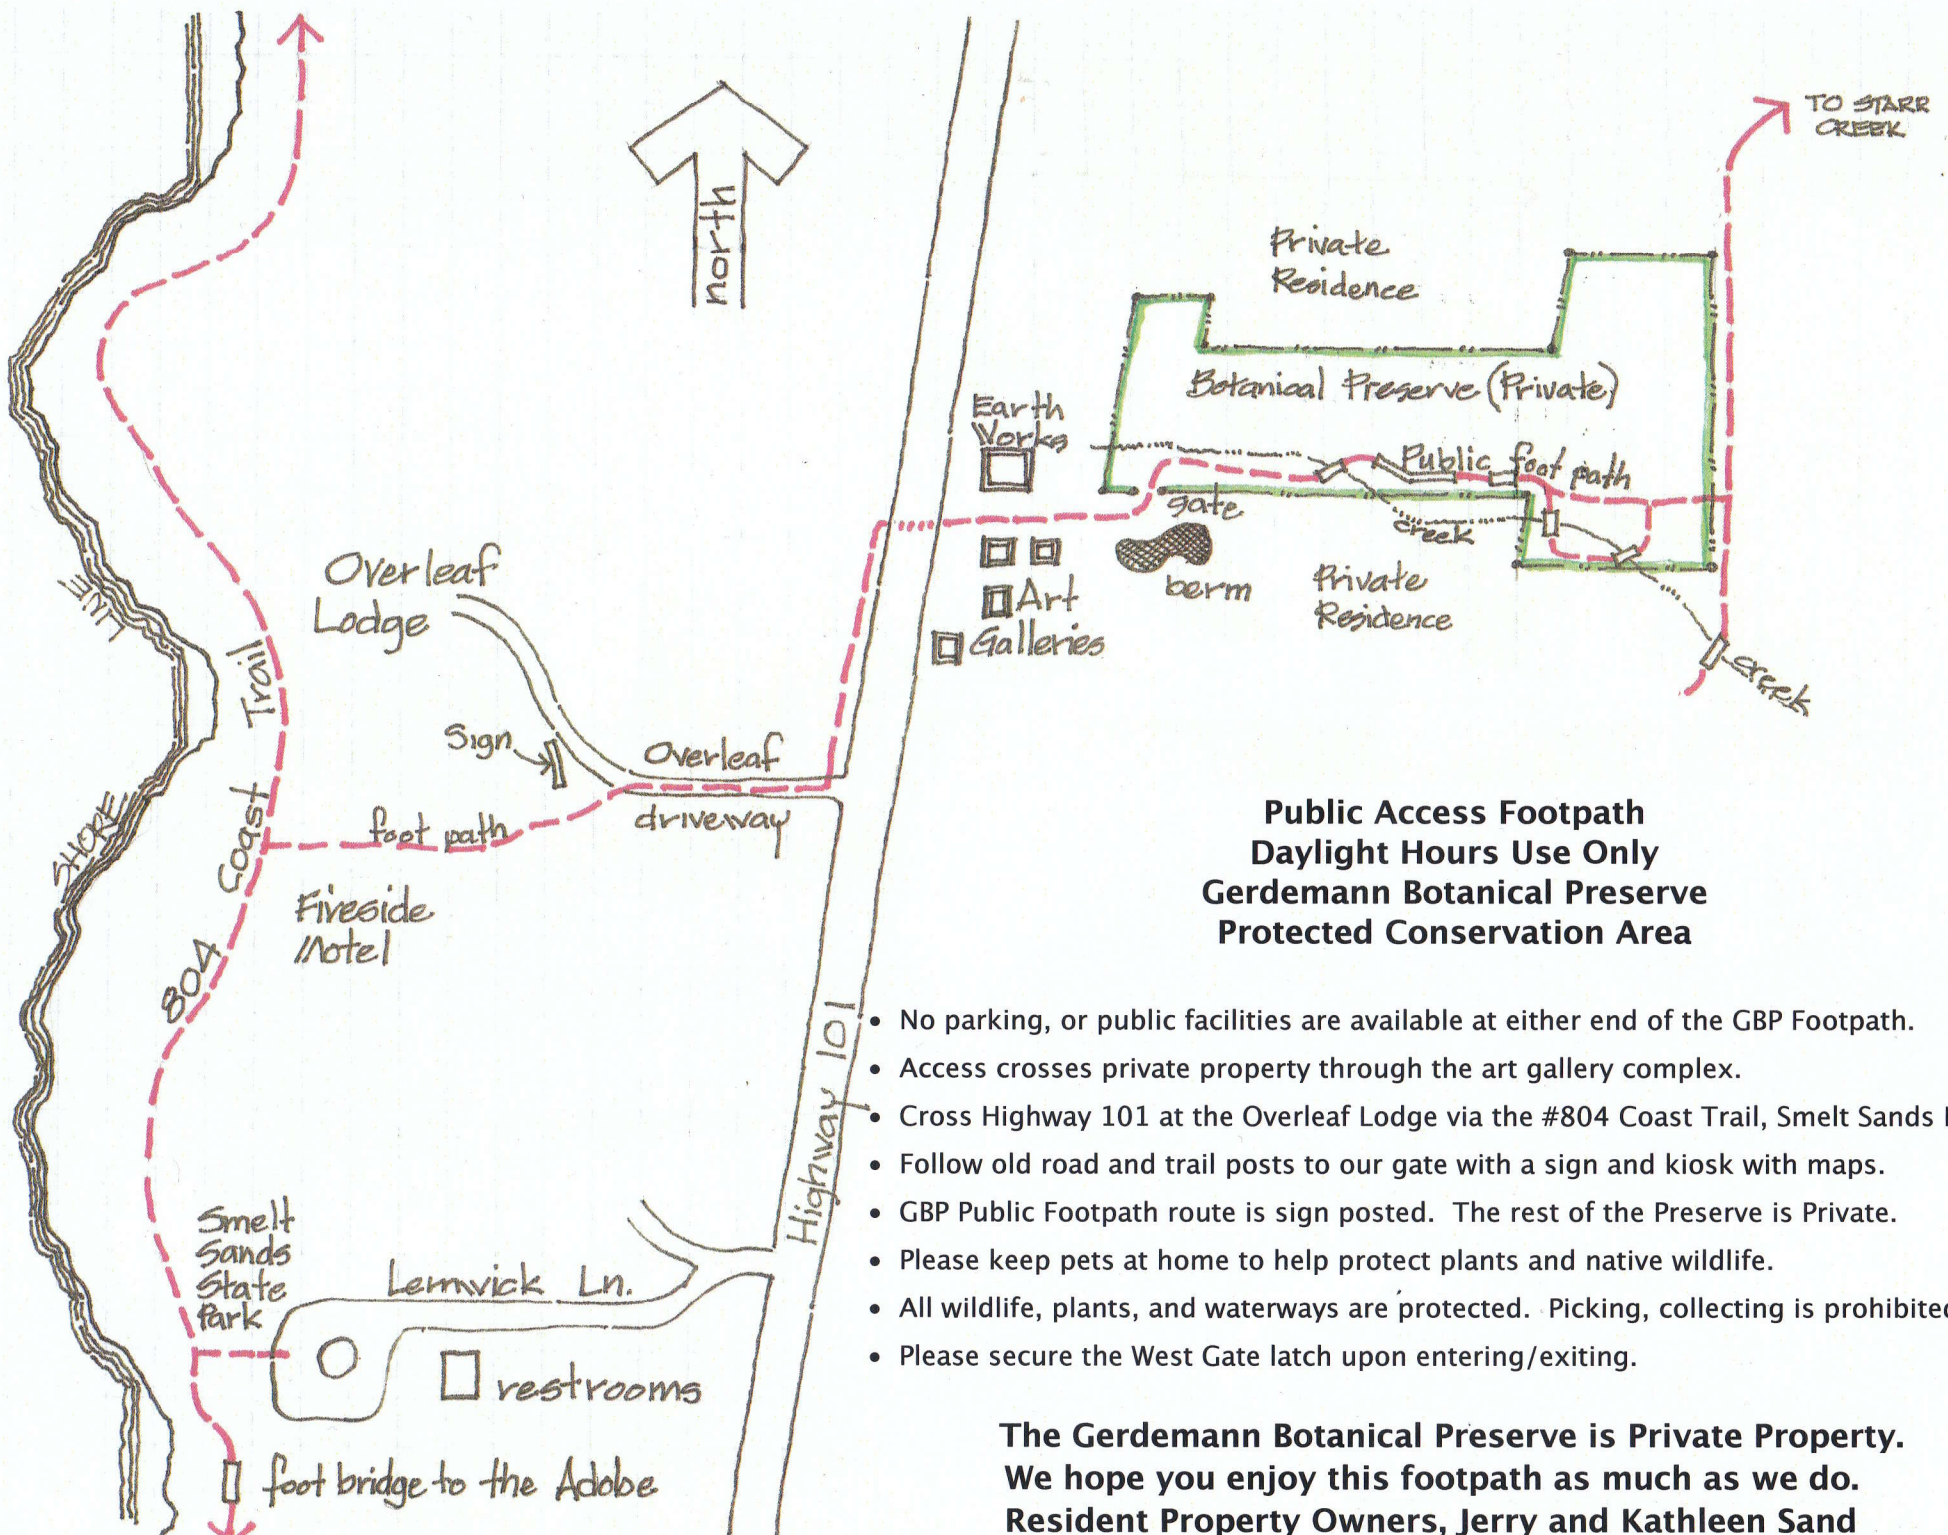 north
TO STARR
CREEK
Private
Residence
Botanical Preserve (Private)
Earth
Works
Public foot path
gate
creek
berm
Private
Residence
creek
Art
Galleries
Overleaf
Lodge
Sign
Overleaf
driveway
foot path
SHORE
LINE
804 Coast Trail
Fireside
Motel
Highway 101
Smelt
Sands
State
Park
Lemwick Ln.
restrooms
foot bridge to the Adobe
Public Access Footpath
Daylight Hours Use Only
Gerdemann Botanical Preserve
Protected Conservation Area
• No parking, or public facilities are available at either end of the GBP Footpath.
• Access crosses private property through the art gallery complex.
• Cross Highway 101 at the Overleaf Lodge via the #804 Coast Trail, Smelt Sands
• Follow old road and trail posts to our gate with a sign and kiosk with maps.
• GBP Public Footpath route is sign posted. The rest of the Preserve is Private.
• Please keep pets at home to help protect plants and native wildlife.
• All wildlife, plants, and waterways are protected. Picking, collecting is prohibited
• Please secure the West Gate latch upon entering/exiting.
The Gerdemann Botanical Preserve is Private Property.
We hope you enjoy this footpath as much as we do.
Resident Property Owners, Jerry and Kathleen Sand